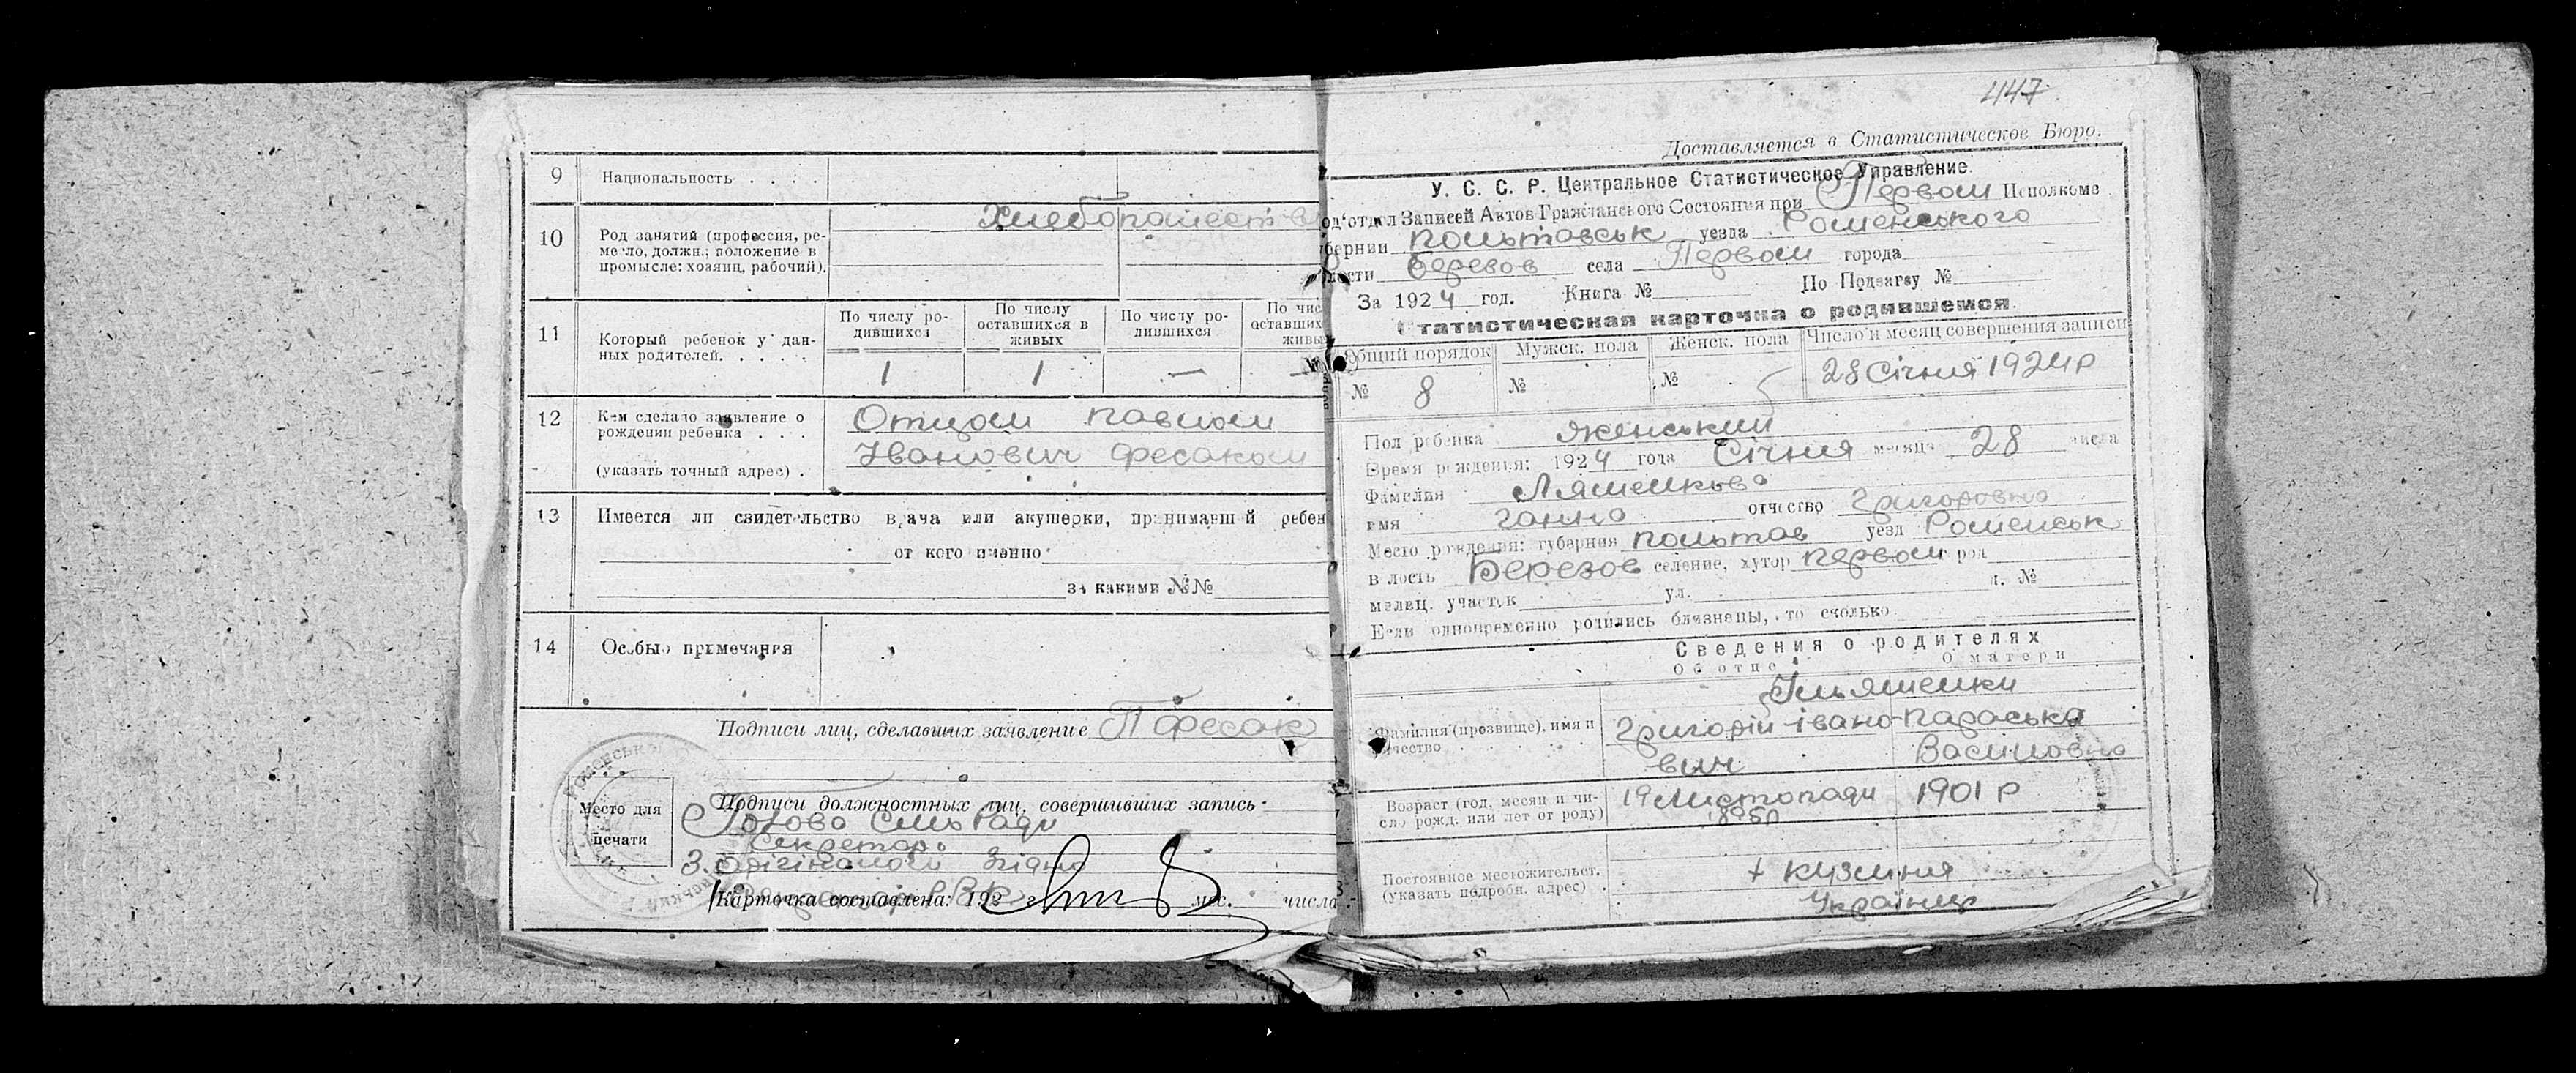 9 Национальность . . . .
10 Род занятий (профессия, ре-
месло, должн.; положение в
промысле: хозяин, рабочий).
Хлебопашеств
11 Который ребенок у дан-
ных родителей. . . . .
По числу ро-
дившихся
По числу
оставшихся в
живых
По числу ро-
дившихся
По чис
оставших
живы
1 1 — —
12 Кем сделано заявление о
рождении ребенка . . .
(указать точный адрес) .
Отцом Павлом
Іванович Фесаком
13 Имеется ли свидетельство врача или акушерки, принимавшей ребен
от кого именно
за какими №№
14 Особые примечания
Подписи лиц, сделавших заявление П Фесак
Место для
печати
Подписи должностных лиц, совершивших запись
Голова Сільради
Секретарь
З. оригіналом Згідно
Карточка составлена: 192 г. мес. числа
447
Доставляется в Статистическое Бюро.
У. С. С. Р. Центральное Статистическое Управление.
од'отдел Записей Актов Гражданского Состояния при Первом Исполкоме
бернии Польтавськ уезда Роменського
лости Березов села Первом города
За 1924 год. Книга № По Подзагсу №
Статистическая карточка о родившемся.
Общий порядок Мужск. пола Женск. пола Число и месяц совершения записи
№ 8 № № 28 Січня 1924 р
Пол ребенка Женський
Время рождения: 1924 года Січня месяца 28 числа
Фамилия Ляшенкова
имя Ганна отчество Григоровна
Место рождения: губерния Польтав уезд Роменськ
волость Березов селение, хутор Первом город
милиц. участок ул. д. №
Если одновременно родились близнецы, то сколько
Сведения о родителях
Об отце О матери
Фамилия (прозвище), имя и
отчество . . . . . .
Ильяшенки
Григорій Івано-
вич
Параська
Василовна
Возраст (год, месяц и чи-
сло рожд. или лет от роду)
19 Листопади
1901 р
Постоянное местожительст.
(указать подробн. адрес) .
х Кузмня
Українці